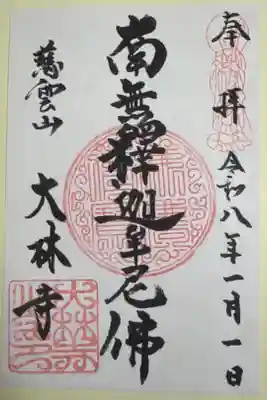 奉拝 令和八年一月一日
南無釋迦牟尼佛
慈雲山
大林寺